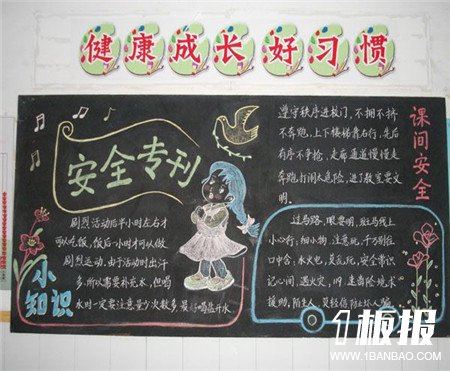 健康成长好习惯
安全专刊
小
知识
剧烈活动后半小时左右才
可以吃饭，饭后一小时才可以做
剧烈运动，由于活动时出汗
多，所以需要补充水，但喝
水时一定要注意量少次数多，最好喝盐开水
课间安全
遵守秩序进校门，不拥不挤
不奔跑，上下楼梯靠右行，先后
有序不争抢，走廊通道慢慢走
奔跑打闹太危险，进了教室要文
明。
过马路，眼要明，斑马线上
小心行，细小物，注意玩，千万别往
口中含，水火电，莫乱玩，安全常识
记心间，遇火灾，
走离险境求
援助，陌生人，莫轻信防止坏人骗
1板报
WWW.1BANBAO.COM